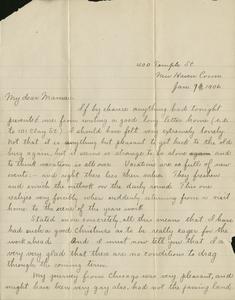 400 Temple St.
New Haven Conn
Jan. 9th 1906
My dear Mama:
If by chance anything had tonight
prevented me from writing a good long letter home (i.e.
to 151 Clay St.) I should have felt very extremely lonely.
Not that it is anything but pleasant to get back to the old
busy again, but it seems so strange to be alone again and
to think vacation is all over. Vacations are so full of new
events - and right there lies their value. They freshen
and enrich the outlook on the daily round. This one
realizes very forcibly when suddenly returning from a visit
home to the
Stated more concretely, all this means that I have
had such a good Christmas as to be really eager for the
work ahead. And I must now tell you that I'd a
very very glad that there are no conditions to drag
through the coming term.
My journey from Chicago was very pleasant, and
might have been very gay also, had not the passing land